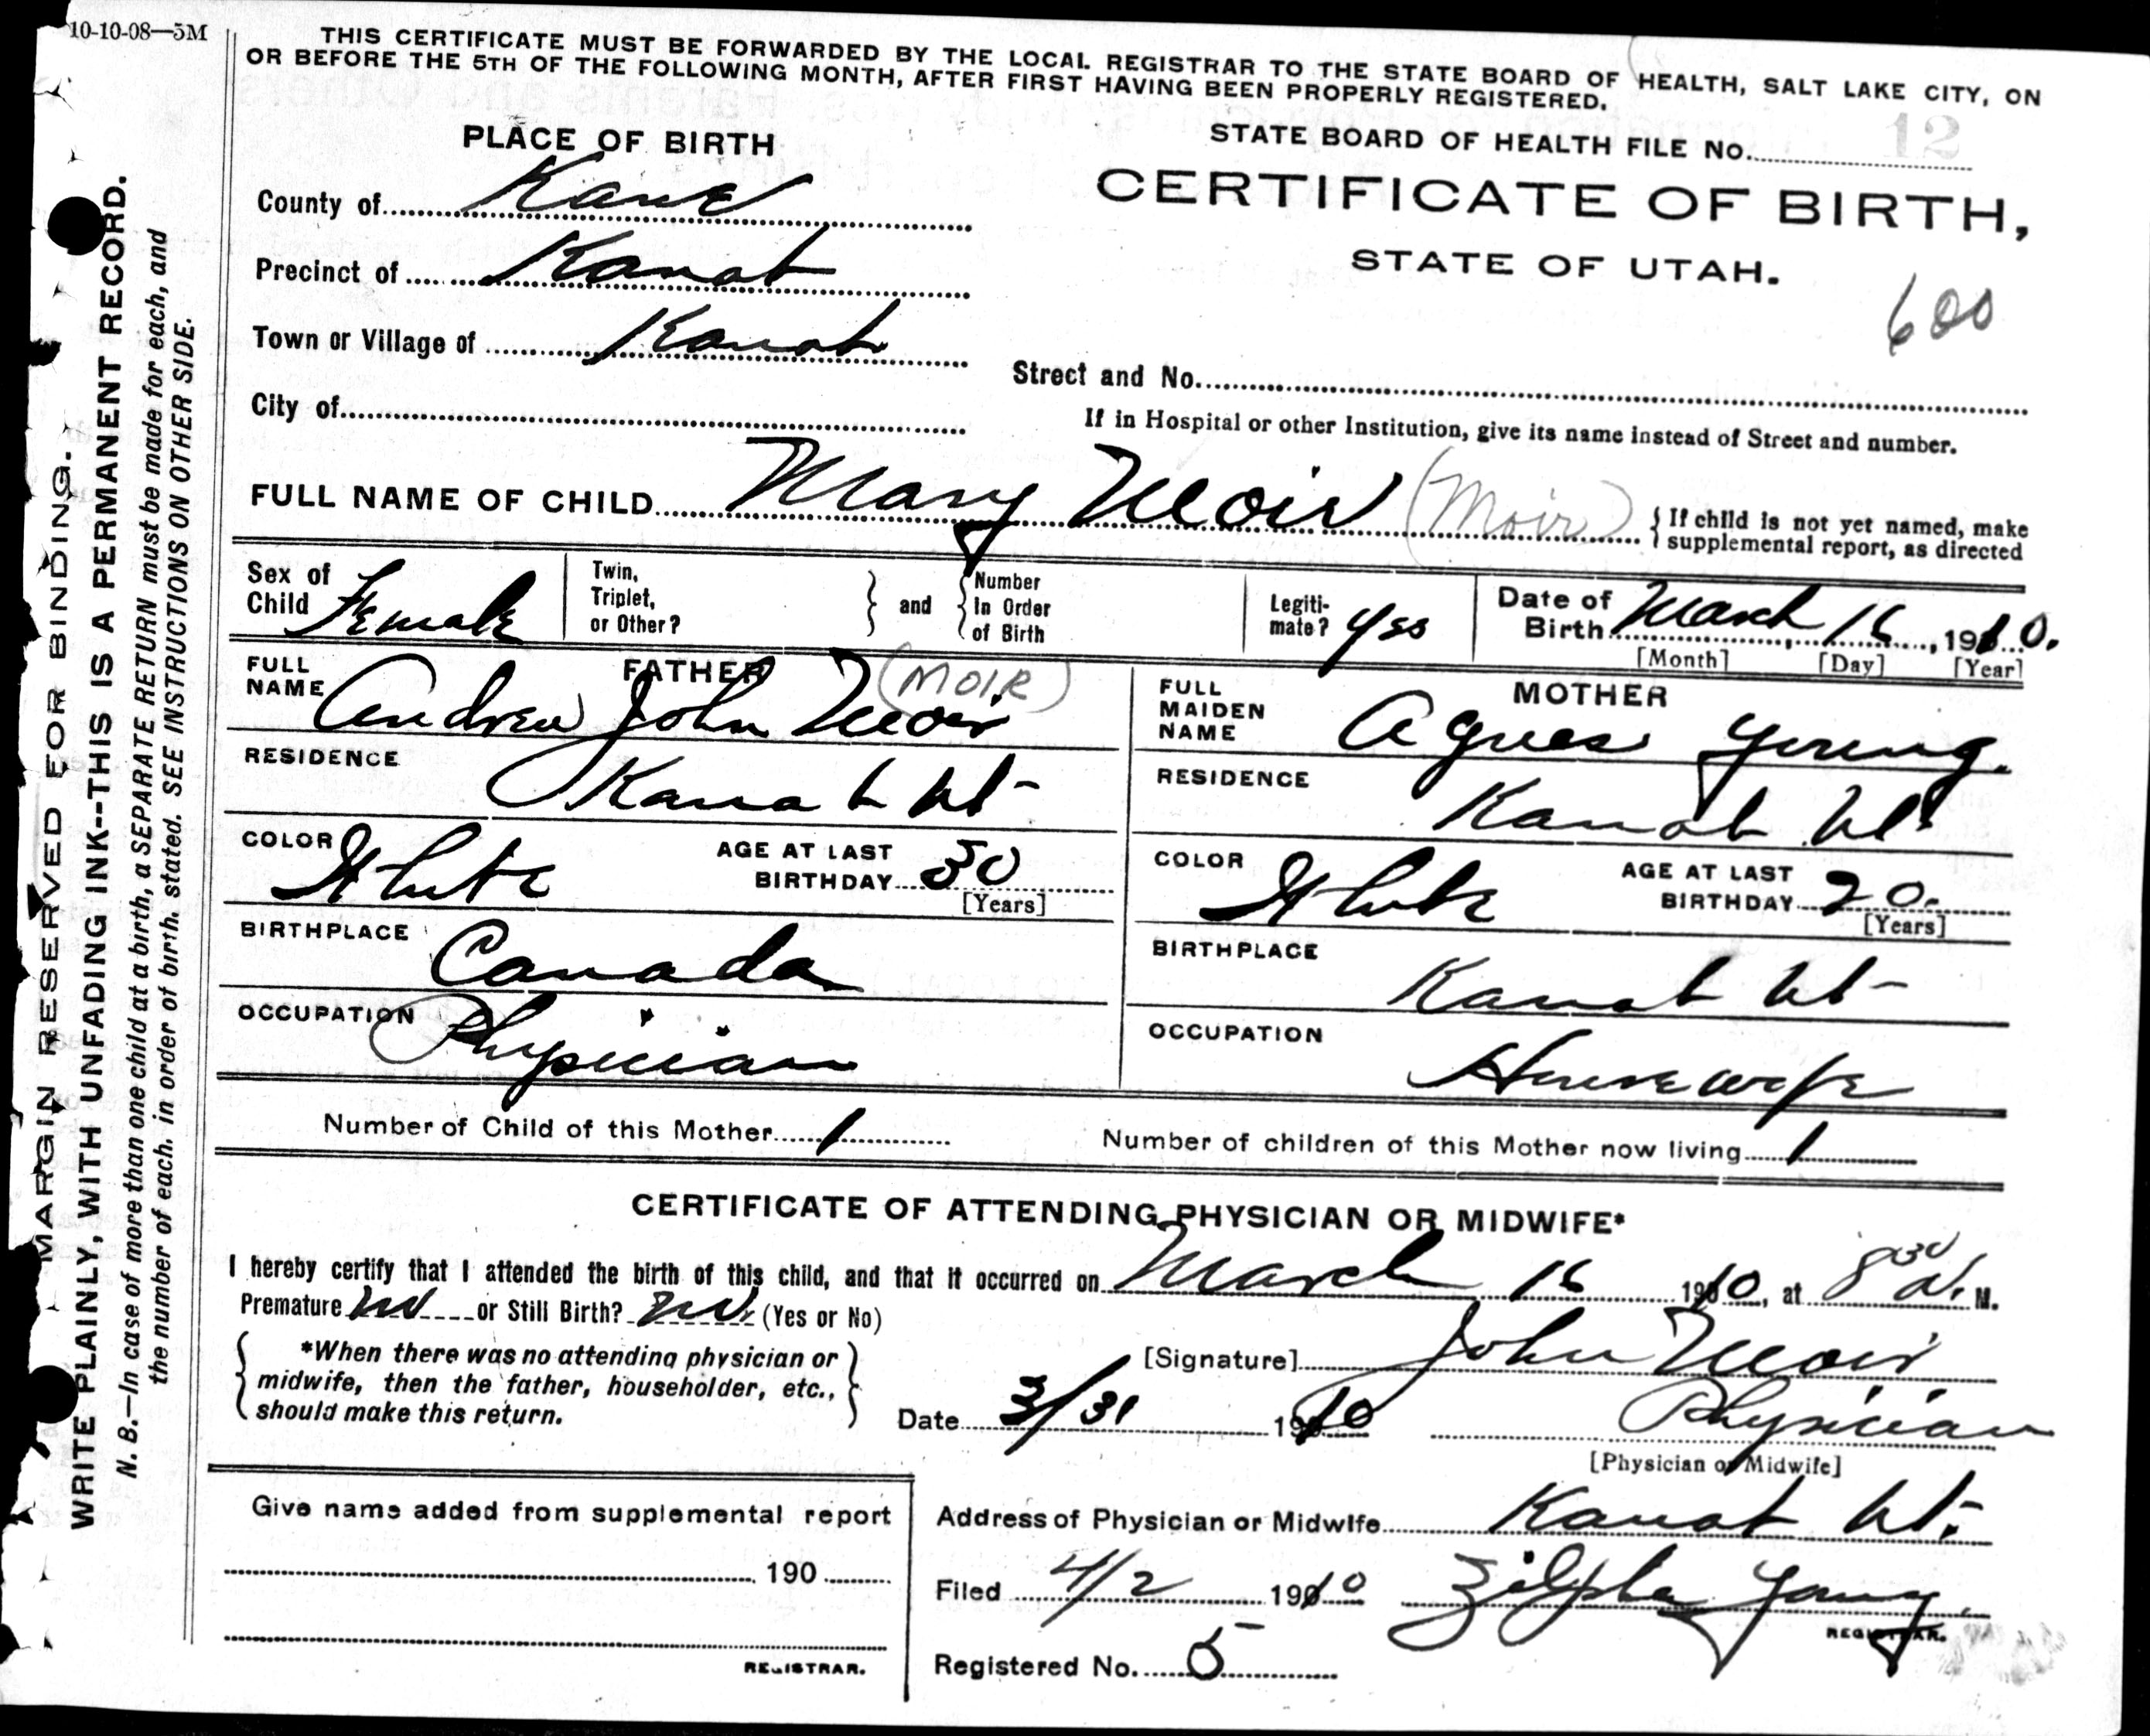 10-10-08—5M
THIS CERTIFICATE MUST BE FORWARDED BY THE LOCAL REGISTRAR TO THE STATE BOARD OF HEALTH, SALT LAKE CITY, ON
OR BEFORE THE 5TH OF THE FOLLOWING MONTH, AFTER FIRST HAVING BEEN PROPERLY REGISTERED.
PLACE OF BIRTH
STATE BOARD OF HEALTH FILE No. 12
County of Kane
CERTIFICATE OF BIRTH,
Precinct of Kanab
STATE OF UTAH.
600
Town or Village of Kanab
Street and No.
City of
If in Hospital or other Institution, give its name instead of Street and number.
FULL NAME OF CHILD Mary Moir (Moir) { If child is not yet named, make supplemental report, as directed
Sex of Child Female
Twin, Triplet, or Other? } and { Number In Order of Birth
Legiti-mate? Yes
Date of Birth March 16, 1910.
[Month] [Day] [Year]
FATHER
FULL NAME Andrew John Moir (MOIR)
RESIDENCE Kanab Ut-
COLOR White AGE AT LAST BIRTHDAY 30
[Years]
BIRTHPLACE Canada
OCCUPATION Physician
MOTHER
FULL MAIDEN NAME Agnes Young.
RESIDENCE Kanab Ut-
COLOR White AGE AT LAST BIRTHDAY 20.
[Years]
BIRTHPLACE Kanab Ut-
OCCUPATION Housewife
Number of Child of this Mother 1 Number of children of this Mother now living 1
CERTIFICATE OF ATTENDING PHYSICIAN OR MIDWIFE*
I hereby certify that I attended the birth of this child, and that it occurred on March 16 1910, at 8 30 A. M.
Premature No or Still Birth? No. (Yes or No)
{ *When there was no attending physician or midwife, then the father, householder, etc., should make this return. }
[Signature] John Moir
Date 3/31 1910 Physician
[Physician or Midwife]
Give name added from supplemental report
190
REGISTRAR.
Address of Physician or Midwife Kanab Ut.
Filed 4/2 1910 Zilpha Young
REGISTRAR.
Registered No. 5
MARGIN RESERVED FOR BINDING.
WRITE PLAINLY, WITH UNFADING INK--THIS IS A PERMANENT RECORD.
N. B.—In case of more than one child at a birth, a SEPARATE RETURN must be made for each, and
the number of each, in order of birth, stated. SEE INSTRUCTIONS ON OTHER SIDE.